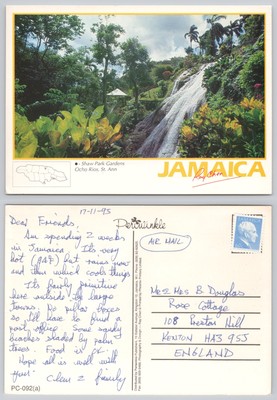 • Shaw Park Gardens
Ocho Rios, St. Ann
JAMAICA
17-11-95
Dear Friends,
Am spending 2 weeks
in Jamaica. It's very
hot (90°F) but rains now
and then which cools things.
It's fairly primitive
here outside the large
towns. No pillar boxes
so I'll have to find a
post office. Some sandy
beaches shaded by palm
trees. Food is OK.
Hope all is well with
you!
& family
PC-092(a)
Periwinkle
AIR MAIL
Mr & Mrs B Douglas
Rose Cottage
108 Preston Hill
KENTON HA3 9SS
ENGLAND